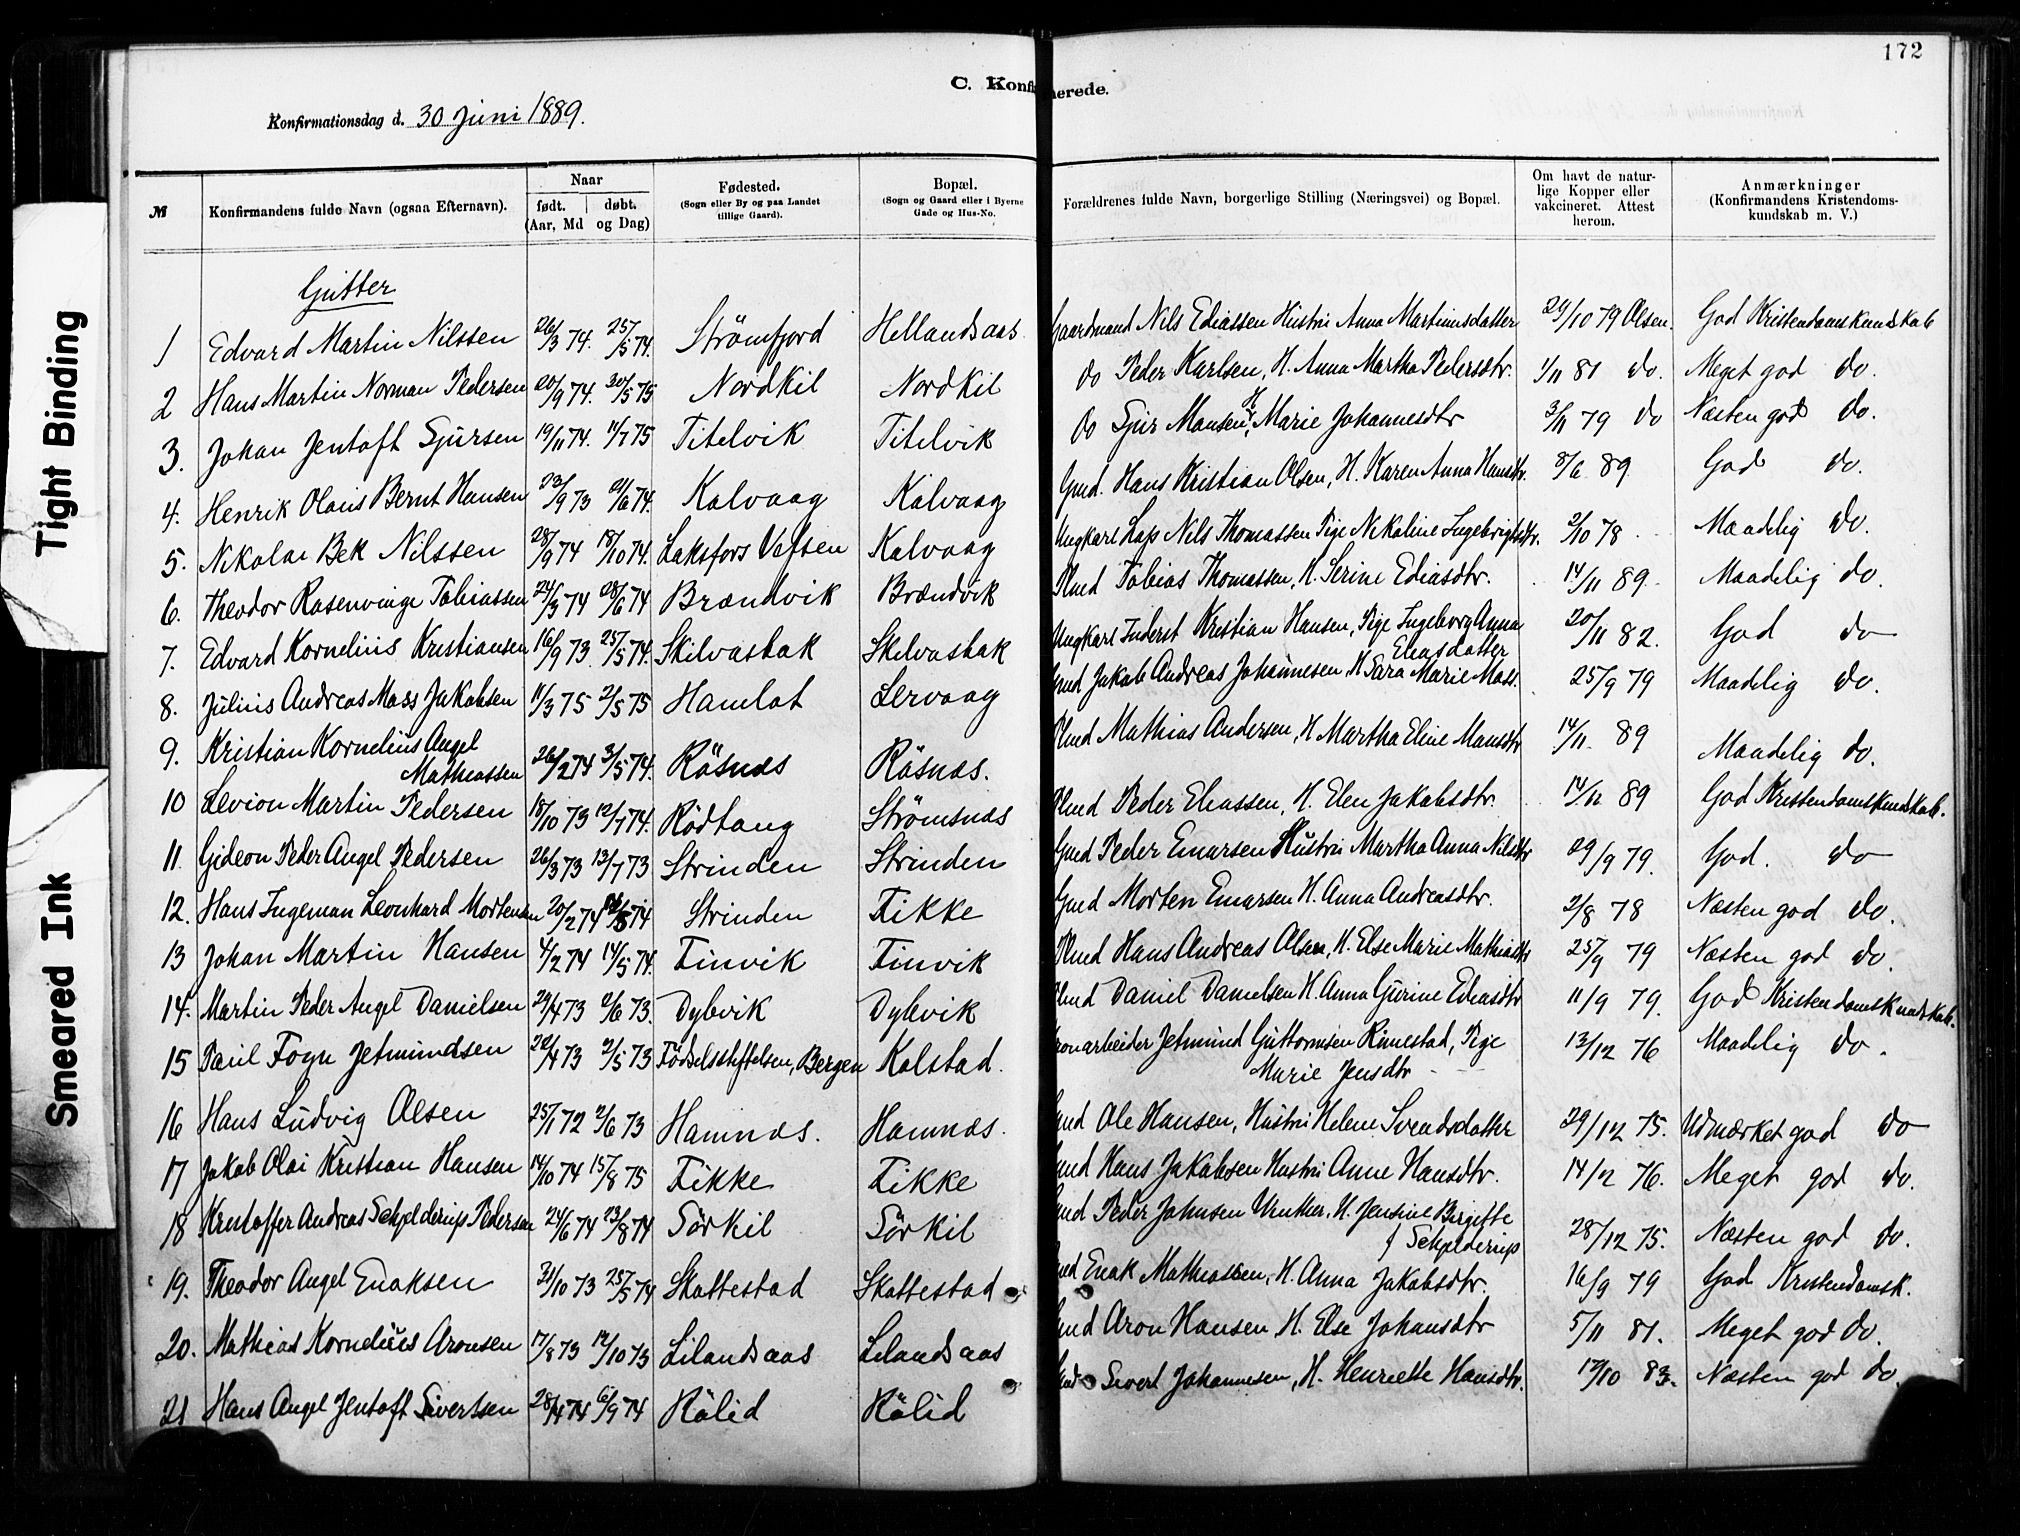 172
C. Konfirmerede.
Konfirmationsdag d. 30 Juni 1889.
№ | Konfirmandens fulde Navn (ogsaa Efternavn). | Naar født. døbt. (Aar, Md og Dag) | Fødested. (Sogn eller By og paa Landet tillige Gaard). | Bopæl. (Sogn og Gaard eller i Byerne Gade og Hus-No. | Forældrenes fulde Navn, borgerlige Stilling (Næringsvei) og Bopæl. | Om havt de naturlige Kopper eller vakcineret. Attest herom. | Anmærkninger (Konfirmandens Kristendomskundskab m. V.)
Gutter
1 Edvard Martin Nilssen 26/3 74. 25/5 74. Strömfjord Hellandsaas Gaardmand Nils Ediassen Hustru Anna Martinusdatter 24/10 79 Olsen. God Kristendomskundskab
2 Hans Martin Norman Pedersen 20/9 74. 30/5 75 Nordkil Nordkil do Peder Karlsen, H. Anna Martha Pedersdtr. 1/11 81 do. Meget god do.
3. Johan Jentoft Sjursen 19/11 74. 11/7 75 Titelvik Titelvik do Sjur Monsen, H. Marie Johannesdtr 3/11 79 do Næsten god do.
4. Henrik Olaus Bernt Hansen 23/9 73 21/6 74. Kalvaag Kalvaag Gmd. Hans Kristian Olsen, H. Karen Anna Hansdtr. 8/6 89 God do.
5. Nikolai Bek Nilssen 28/9 74 18/10 74. Laksfors Vefsen Kalvaag Ungkarl Lap Nils Thomassen Pige Nikoline Ingebrigtsdtr. 2/10 78 Maadelig do.
6. Theodor Rosenvinge Tobiassen 24/3 74 28/6 74 Brændvik Brændvik Plmd Tobias Thomassen, H. Serine Ediasdtr. 14/11 89. Maadelig do.
7. Edvard Kornelius Kristiansen 16/9 73. 25/5 74. Skilvasbak Skilvasbak Ungkarl Inderst Kristian Hansen, Pige Ingeborg Anna
Eliasdatter 20/11 82. God do
8. Julius Andreas Moss Jakobsen 11/3 75 2/5 75 Hamlot Lervaag Gmd Jakob Andreas Johannesen, H Sara Marie Moss. 25/9 79 Maadelig do.
9. Kristian Kornelius Angel
Mathiassen 26/2 74 3/5 74. Råsnæs Råsnæs. Plmd Mathias Andersen, H Martha Eline Monsdtr 14/11. 89 Maadelig do.
10 Levion Martin Pedersen 18/10 73 12/7 74. Rödtang Strömsnæs Plmd Peder Eliassen, H. Elen Jakobsdtr. 14/11 89 God Kristendomskundskab.
11. Gideon Peder Angel Pedersen 26/3 73 13/7 73 Strinden Strinden Gmd Peder Enarsen Hustru Martha Anna Nilsdtr 29/9 79. God. do
12. Hans Ingeman Leonhard Mortensen 20/2 74 /5 74 Strinden Fikke Gmd Morten Enarsen H. Anna Andreasdtr. 2/8 78 Næsten god do.
13 Johan Martin Hansen 4/2 74 14/5 74. Finvik Finvik Plmd Hans Andreas Olsen, H. Else Marie Mathiasdtr 25/9 79 Næsten god do.
14. Martin Peder Angel Danielsen 29/4 73 2/6 73. Dybvik Dybvik Plmd Daniel Danielsen H. Anna Gurine Ediasdtr 11/9 79. God Kristendomskundskab.
15 Paul Fogn Jetmundsen 22/4 73 2/5 73 Födselsstiftelsen, Bergen Kalstad. Jetmund Guttormsen Rinnestad, Pige
Marie Jensdtr 13/12 76 Maadelig do.
16 Hans Ludvig Olsen 25/1 72 2/6 73 Hamnæs. Hamnæs. Gmd Ole Hansen, Hustru Helene Svendsdatter 29/12 75. Udmærket god do
17 Jakob Olai Kristian Hansen 14/10 74 15/8 75 Fikke Fikke Gmd Hans Jakobsen Hustru Anne Hansdtr. 14/12 76. Meget god do.
18 Kristoffer Andreas Schjelderup Pedersen 24/6 74 23/8 74 Sörkil Sörkil Gmd Peder Johnsen Winther, H. Jensine Birgitte
f Schjelderup 28/12 75. Næsten god do.
19. Theodor Angel Enoksen 31/10 73 25/5 74 Skattestad Skattestad Gmd Enok Mathiassen, H. Anna Jakobsdtr. 16/9 79 God Kristendomsk.
20. Mathias Kornelius Aronsen 17/8 73 12/10 73 Lilandsaas Lilandsaas Gmd Aron Hansen H. Else Johansdtr 5/11 81. Meget god do.
21 Hans Angel Jentoft Sivertsen 28/4 74 6/9 74 Rålid Rålid Gmd Sivert Johannesen, H. Henriette Hansdtr. 12/10 83. Næsten god do.
Tight Binding
Smeared Ink